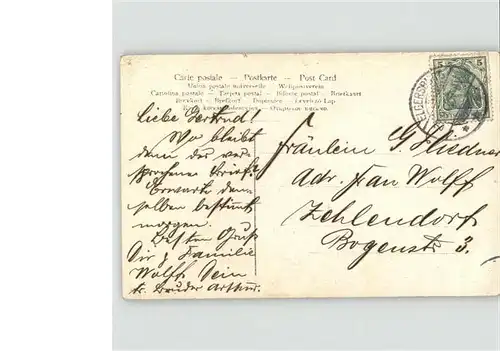 Carte postale — Postkarte — Post Card
Union postale universelle — Weltpostverein
Cartolina postale — Tarjeta postal — Bilhete postal — Briefkaart
Brevkort — Brefkort — Dopisnice — Levelező-Lap
5 5
Liebe Gertrud!
Wo bleibt
denn der ver-
sprochene Brief?
Erwarte den-
selben bestimmt
morgen.
Besten Gruß
Dir & Familie
Wolff Dein
tr. Bruder Arthur.
Fräulein G.
Adr. Frau Wolff
Zehlendorf
Bogenstr 3.